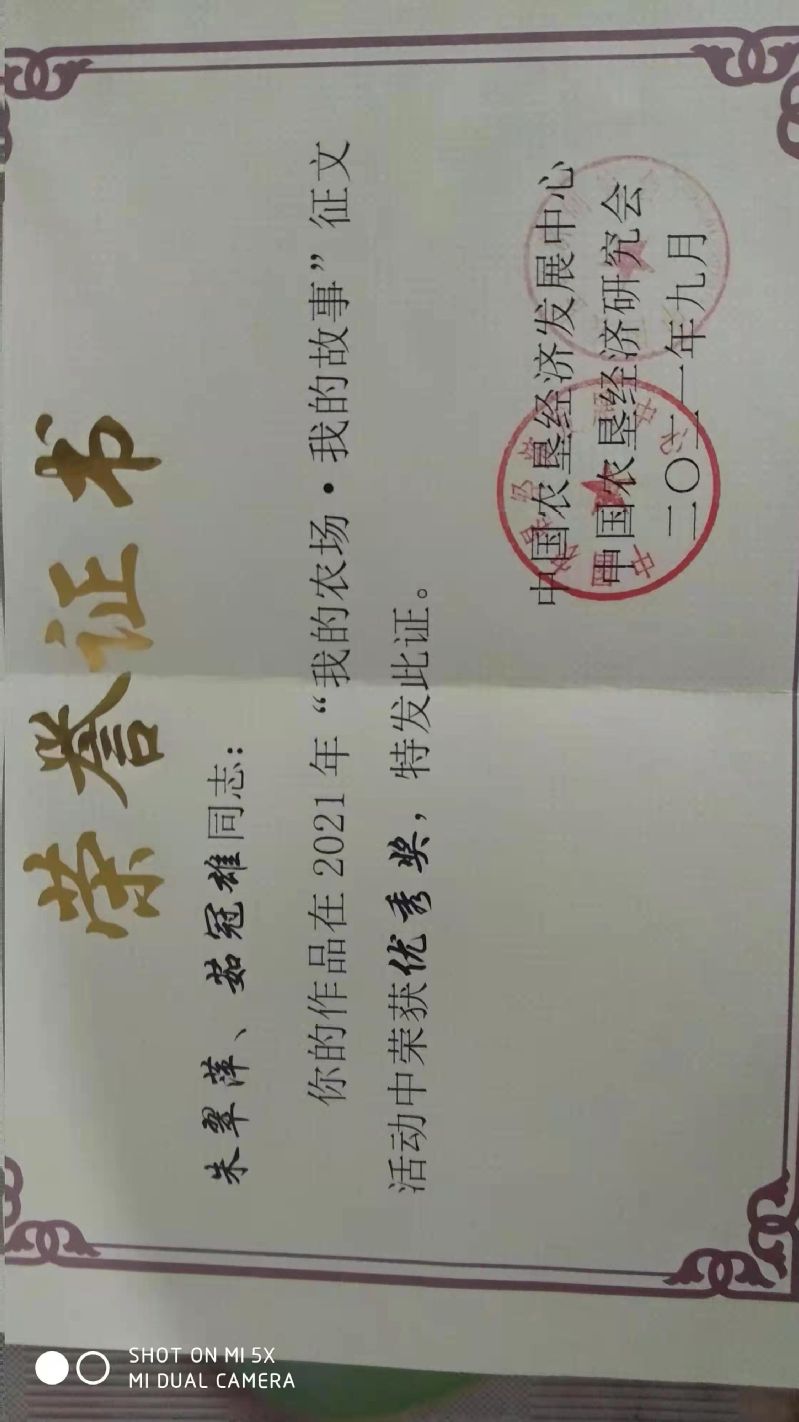 荣誉证书
朱翠萍、茹冠雄同志：
你的作品在2021年“我的农场·我的故事”征文
活动中荣获优秀奖，特发此证。
中国农垦经济发展中心
中国农垦经济研究会
二〇二一年九月
SHOT ON MI 5X
MI DUAL CAMERA